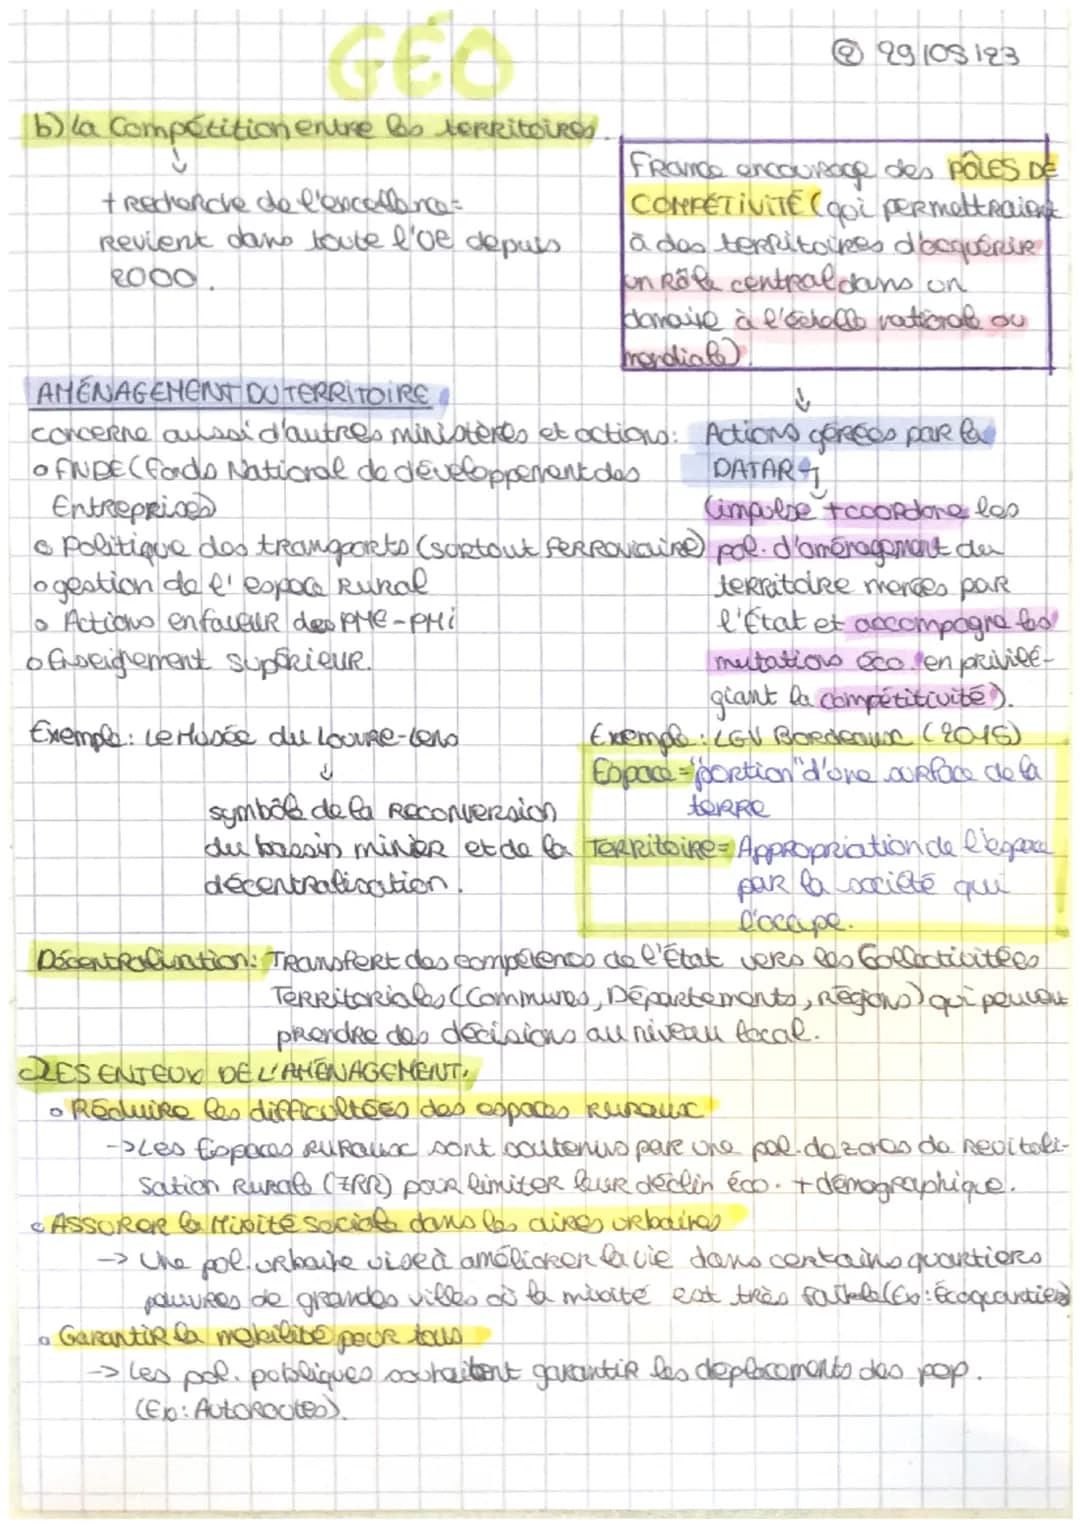 GÉO
② 29/05/23
b) La Compétition entre les territoires.
+ recherche de l'excellence =
Revient dans toute l'UE depuis
2000.
France encourage des PÔLES DE
COMPÉTITIVITÉ (qui permettraient
à des territoires d'acquérir
un Rôle central dans un
domaine à l'échelle nationale ou
mondiale).
AMÉNAGEMENT DU TERRITOIRE
concerne aussi d'autres ministères et actions:
o FNDE (Fonds National de développement des
Entreprises)
o Politique des transports (surtout ferroviaire)
o gestion de l'espace Rural
o Actions en faveur des PME-PMi
o Enseignement supérieur.
Actions gérées par la
DATAR
(impulse + coordone les
pol. d'aménagement du
territoire menées par
l'État et accompagne les
mutations éco. en privilé-
giant la compétitivité).
Exemple: Le Musée du Louvre-Lens
symbole de la Reconversion
du bassin minier et de la
décentralisation.
Exemple: LGV Bordeaux (2016)
Espace = "portion" d'une surface de la
terre
Territoire = Appropriation de l'espace
par la société qui
l'occupe.
Décentralisation: Transfert des compétences de l'État vers les Collectivitées
Territoriales (Communes, Départements, Régions) qui peuvent
prendre des décisions au niveau local.
c) LES ENJEUX DE L'AMÉNAGEMENT.
o Réduire les difficultées des espaces Ruraux
-> Les Espaces Ruraux sont soutenus par une pol. de zones de revitali-
sation Rurale (ZRR) pour limiter leur déclin éco. + démographique.
o ASSURER la Mixité sociale dans les aires urbaines
-> Une pol. urbaine vise à améliorer la vie dans certains quartiers
pauvres de grandes villes où la mixité est très faible (Ex: Écoquartiers)
o Garantir la mobilité pour tous
-> Les pol. publiques souhaitent garantir les déplacements des pop.
(Ex: Autoroutes).